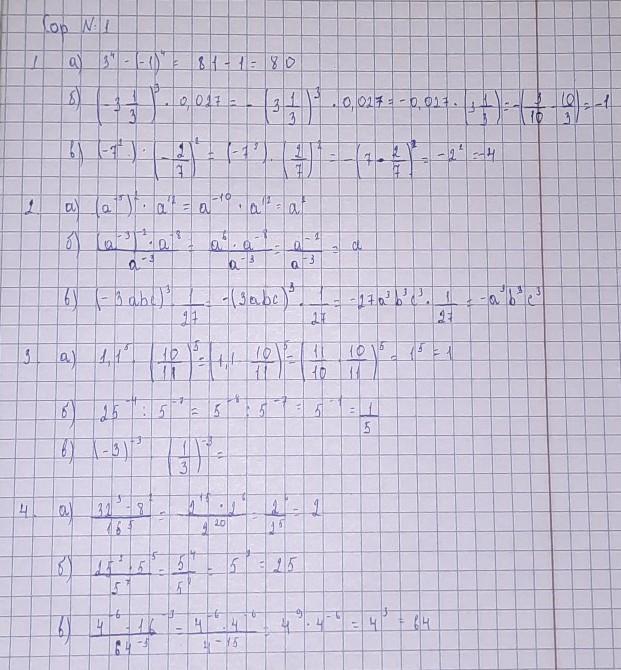 Сор №1
1. а) 3⁴ - (-1)⁴ = 81 - 1 = 80
б) (-3 1/3)³ · 0,027 = -(3 1/3)³ · 0,027 = -0,027 · (3 1/3) = -(3/10 · 10/3) = -1
в) (-7²) · (-2/7)² = (-7²) · (2/7)² = -(7 · 2/7)² = -2² = -4
2. а) (a⁻⁵)² · a¹² = a⁻¹⁰ · a¹² = a²
б) (a⁻³)⁻² · a⁻⁸ / a⁻³ = a⁶ · a⁻⁸ / a⁻³ = a⁻² / a⁻³ = a
в) (-3abc)³ · 1/27 = -(3abc)³ · 1/27 = -27a³b³c³ · 1/27 = -a³b³c³
3. а) 1,1⁵ · (10/11)⁵ = (1,1 · 10/11)⁵ = (11/10 · 10/11)⁵ = 1⁵ = 1
б) 25⁻⁴ : 5⁻⁷ = 5⁻⁸ : 5⁻⁷ = 5⁻¹ = 1/5
в) (-3)⁻³ · (1/3)⁻³ =
4. а) 32³ · 8² / 16⁵ = 2¹⁵ · 2⁶ / 2²⁰ = 2⁶ / 2⁵ = 2
б) 25² · 5⁵ / 5⁷ = 5⁹ / 5⁷ = 5² = 25
в) 4⁻⁶ · 16⁻³ / 64⁻⁵ = 4⁻⁶ · 4⁻⁶ / 4⁻¹⁵ = 4⁹ · 4⁻⁶ = 4³ = 64